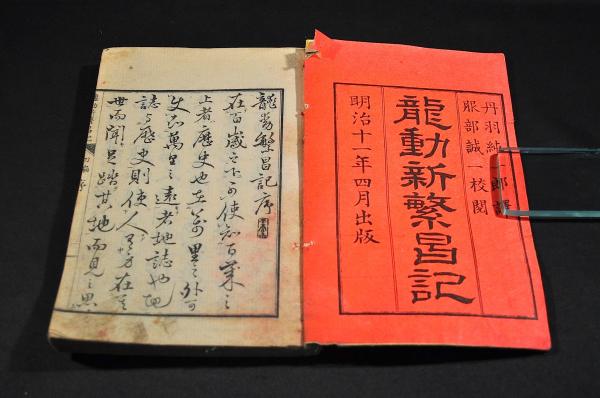 丹羽純一郎譯
服部誠一校閲
龍動新繁昌記
明治十一年四月出版
龍動繁昌記序
在百歳之下可使知百歳之
上者歴史也在萬里之外可
史知萬里之遠者地誌也地
誌與歴史則使人身在
世而聞足踏其地而見之